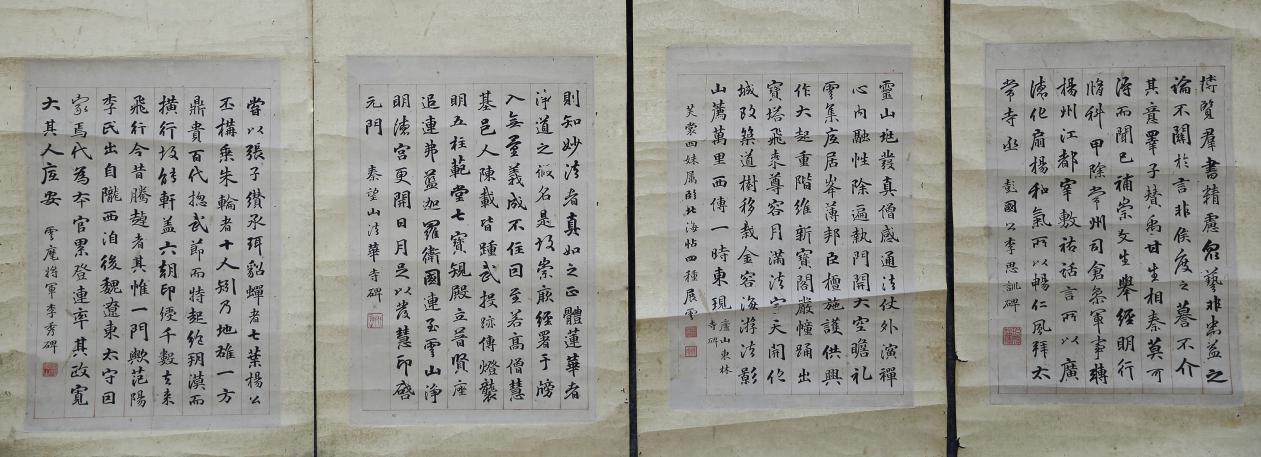 博覽羣書精慮眾藝非常益之
論不關於言非侯度之謩不介
其意睪子賛禹甘生相秦莫可
得而聞已補崇文生舉經明行
脩科甲除常州司倉叅軍事轉
楊州江都宰敷祐話言所以廣
德化扇揚和氣所以暢仁風拜太
常寺丞 彭國公李思訓碑
靈山兆發真僧感通法仗外演禪
心內融性除遍執門開大空瞻礼
雲集庇居岑薄邦臣檀施護供興
作大起重階維新寶閣嚴幢踊出
寶塔飛來尊容月滿法宇天開化
城改築道樹移栽金容海游法影
山薦萬里西傳一時東現 廬山東林寺碑
芙裳四妹屬臨北海帖四種 展雲
則知妙法者真如之正體蓮華者
淨道之假名是故崇厥經署于牓
入無量義成不住因至若高僧慧
基邑人陳載皆踵武投跡傳燈襲
明五柱範堂七寶規殿立普賢座
追連弗薀迦羅衛國連玉雲山淨
明德宮更開日月是以發慧印啓
元門 秦望山法華寺碑
嘗以張子纘承珥貂蟬者七葉楊公
丕構乘朱輪者十人矧乃地雄一方
鼎貴百代惣武節而特起絕玥漠而
橫行故能軒盖六朝印綬千數去來
飛行今昔騰趠者其惟一門歟范陽
李氏出自隴西洎後魏遼東太守因
家焉代為夲官累登連率其政寬
大其人庇安 雲麾將軍李秀碑